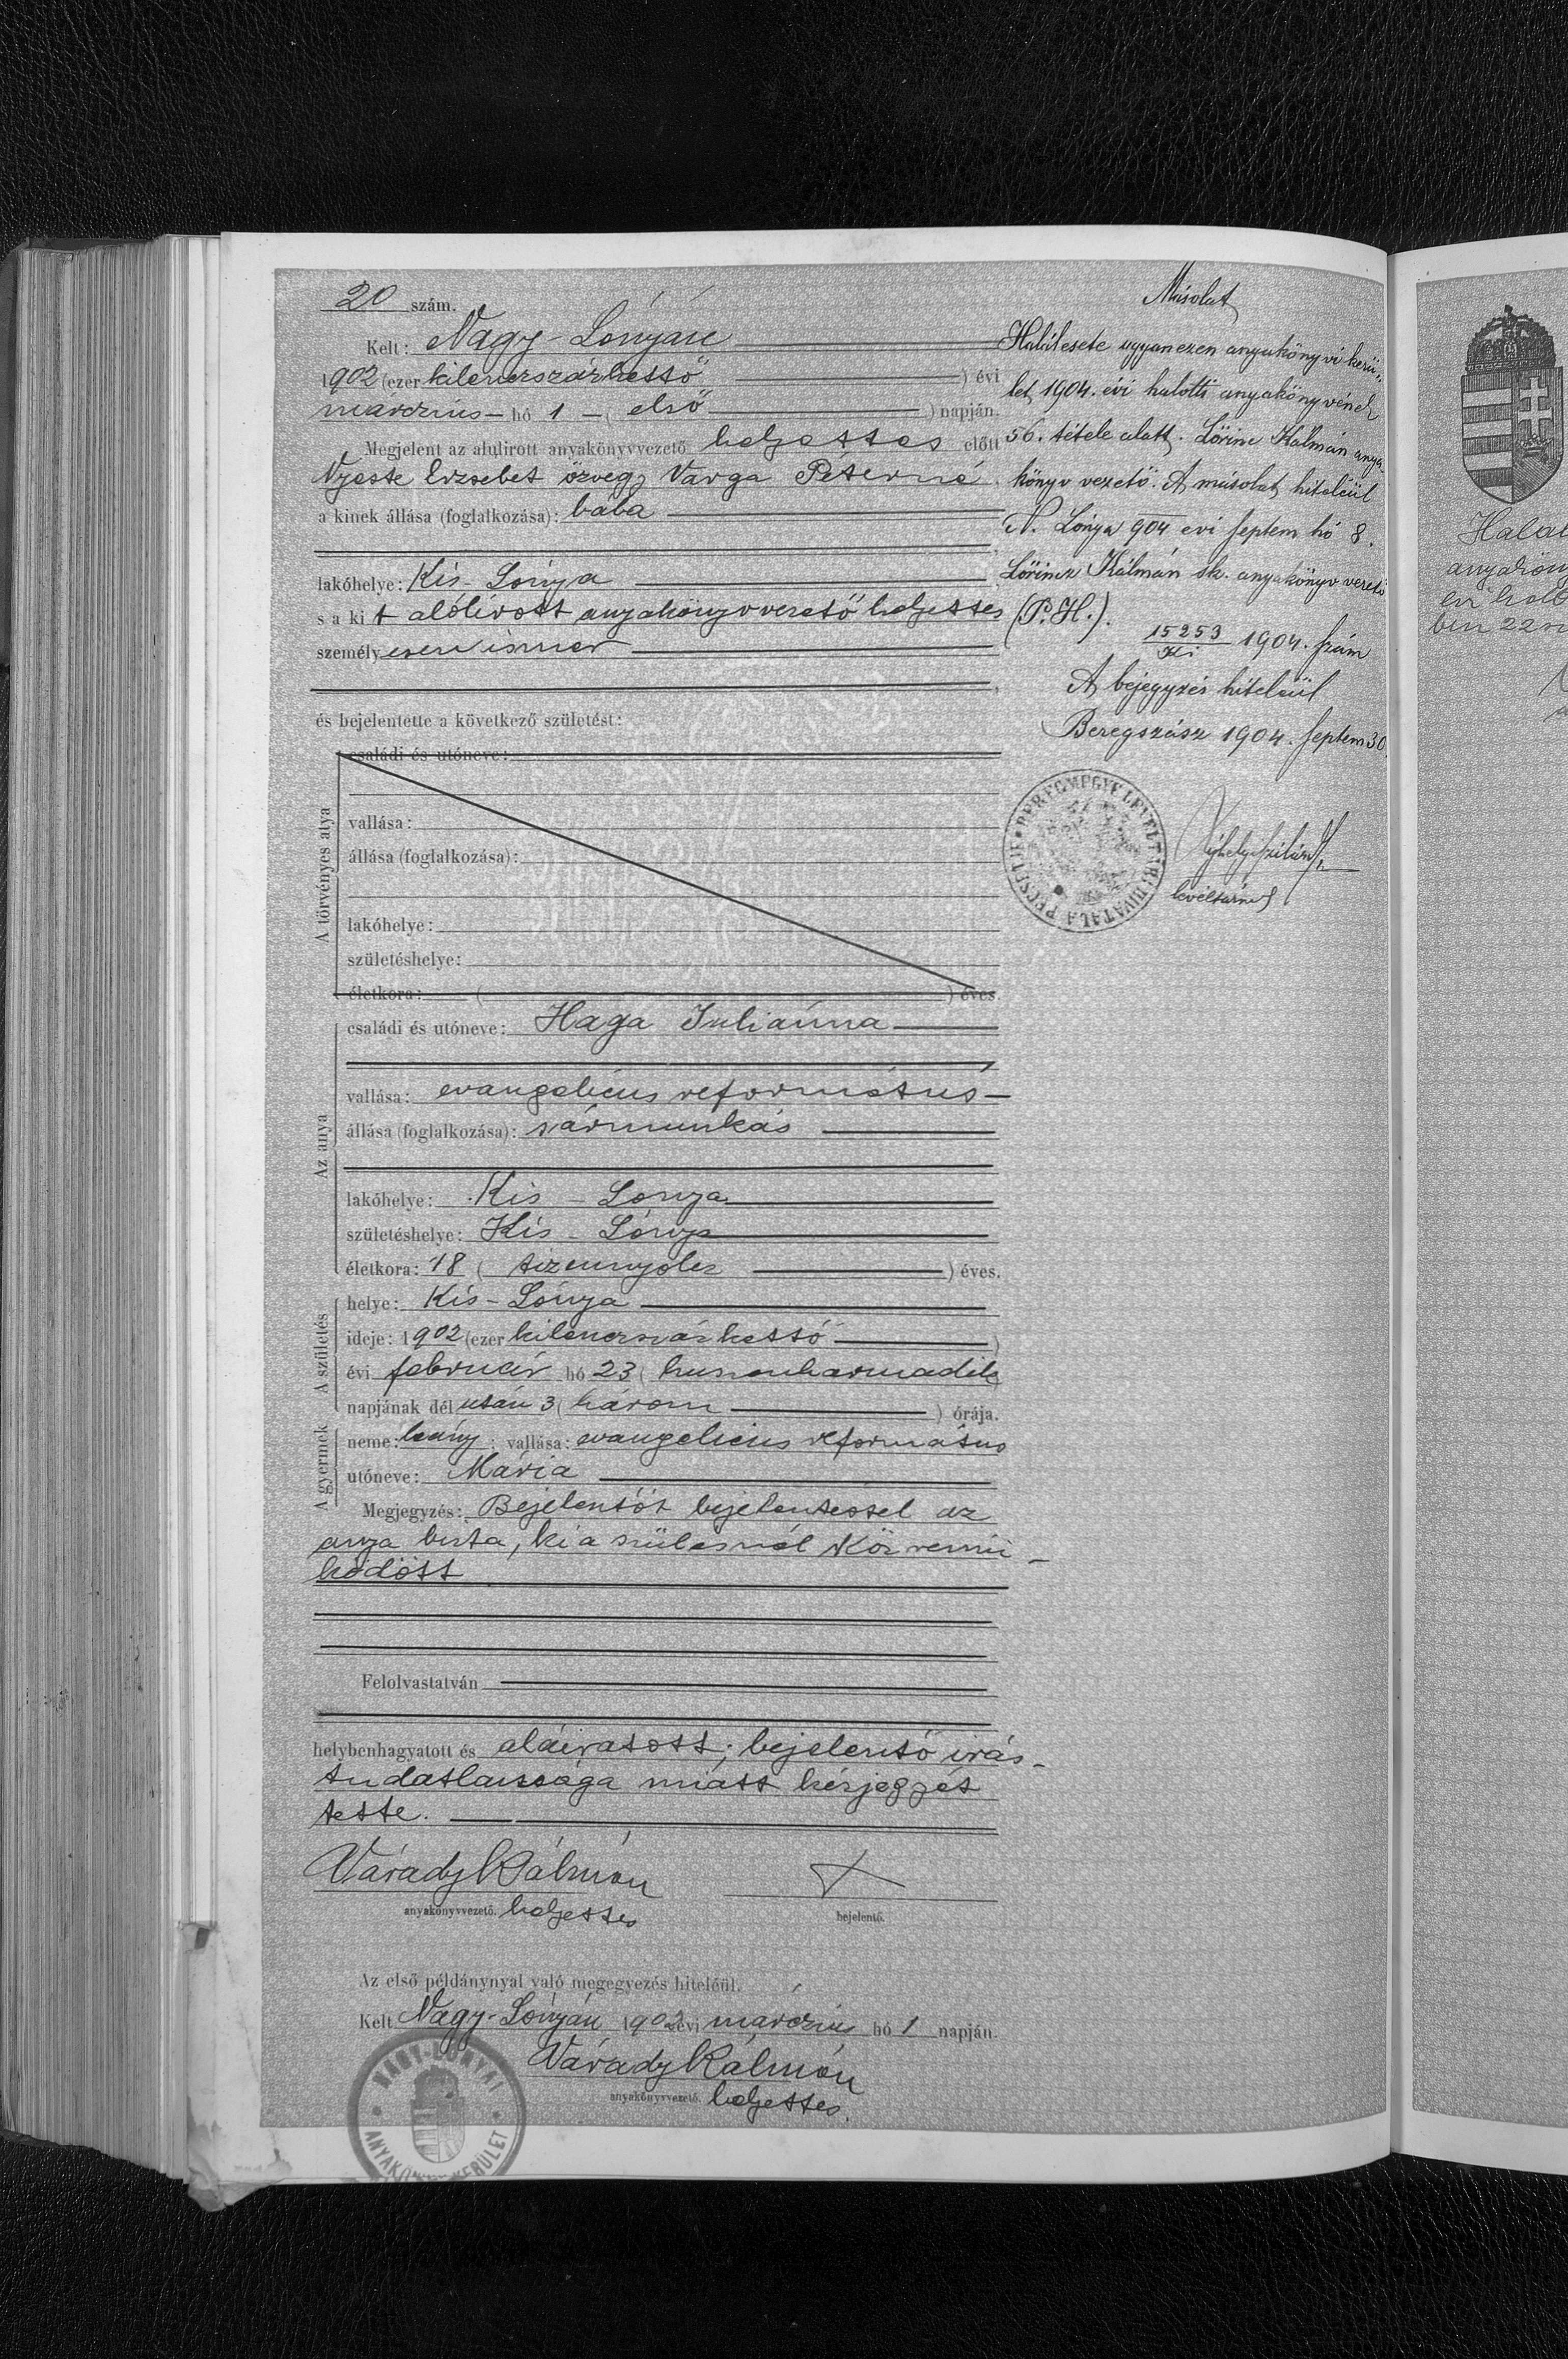 20 szám.
Kelt: Nagy-Lónyán
1902 (ezer kilenczszázkettő ) évi
marczius hó 1 ( első ) napján.
Megjelent az alulirott anyakönyvvezető helyettes előtt
Nyeste Erzsebet özvegy Varga Péterné
a kinek állása (foglalkozása): bába
lakóhelye: Kis-Lónya
s a kit alólirott anyakönyvvezető helyettes
személyesen ismer
és bejelentette a következő születést:
A törvényes atya
családi és utóneve:
vallása:
állása (foglalkozása):
lakóhelye:
születéshelye:
életkora: ( ) éves.
Az anya
családi és utóneve: Haga Juliánna
vallása: evangelicus református
állása (foglalkozása): sármunkás
lakóhelye: Kis-Lonya
születéshelye: Kis-Lónya
életkora: 18 ( tizennyolcz ) éves.
A születés
helye: Kis-Lónya
ideje: 1902 (ezer kilenczszázkettő )
évi február hó 23 ( huszonharmadik )
napjának dél után 3 ( három ) órája.
A gyermek
neme: leány; vallása: evangelicus református
utóneve: Mária
Megjegyzés: Bejelentőt bejelentéssel az
anya bizta, ki a szülésnél közremü-
ködött
Felolvastatván
helybenhagyatott és aláiratott; bejelentő irás-
tudatlansága miatt kézjegyét
tette.
Várady Kálmán
anyakönyvvezető. helyettes
bejelentő.
Az első példánynyal való megegyezés hiteléül.
Kelt Nagy-Lónyán 1902 évi márczius hó 1 napján.
Várady Kálmán
anyakönyvvezető. helyettes.
NAGY-LÓNYAI ANYAKÖNYVI KERÜLET
Másolat
Halálesete ugyanezen anyakönyvi kerü-
let 1904. évi halotti anyakönyvének
56. tétele alatt. Lőrinc Kálmán anya-
könyv vezető. A másolat hiteléül
N. Lónya 904 évi septem hó 8.
Lőrincz Kálmán sk. anyakönyv vezető
(P.H.).
15253/Ki 1904. szám
A bejegyzés hiteléül
Beregszász 1904. septem 30.
BEREGMEGYE LEVÉLTÁRI HIVATALA PECSÉTJE
levéltárnok
Halál
anyakön
évi halo
ben 22